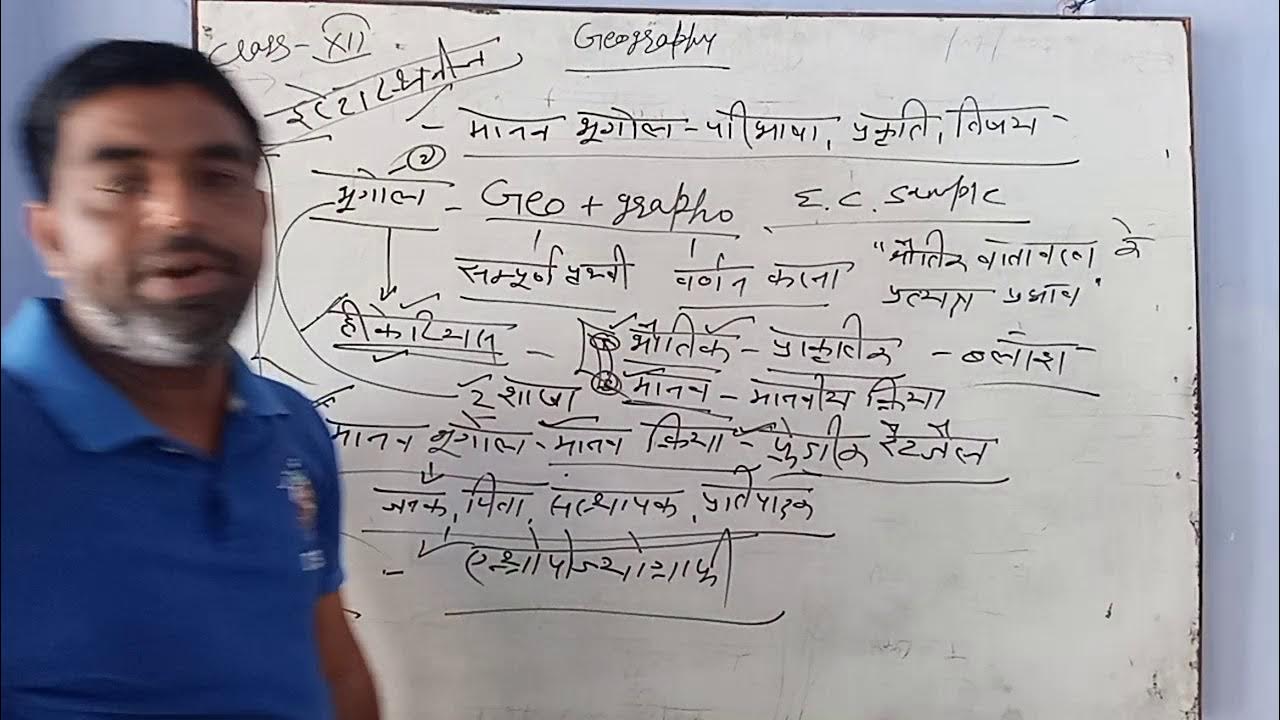 Class - XII
Geography
इरेटास्थनीज
- मानव भूगोल - परिभाषा, प्रकृति, विजय -
②
भूगोल - Geo + grapho
E. C. Sample
सम्पूर्ण पृथ्वी वर्णन करना
"भौतिक वातावरण के
प्रत्यक्ष प्रभाव"
- ① भौतिक - प्राकृतिक - ब्लाश
2 शाखा ② मानव - मानवीय क्रिया
मानव भूगोल - मानव क्रिया - फ्रेडरिक रैटजेल
जनक, पिता, संस्थापक, प्रतिपादक